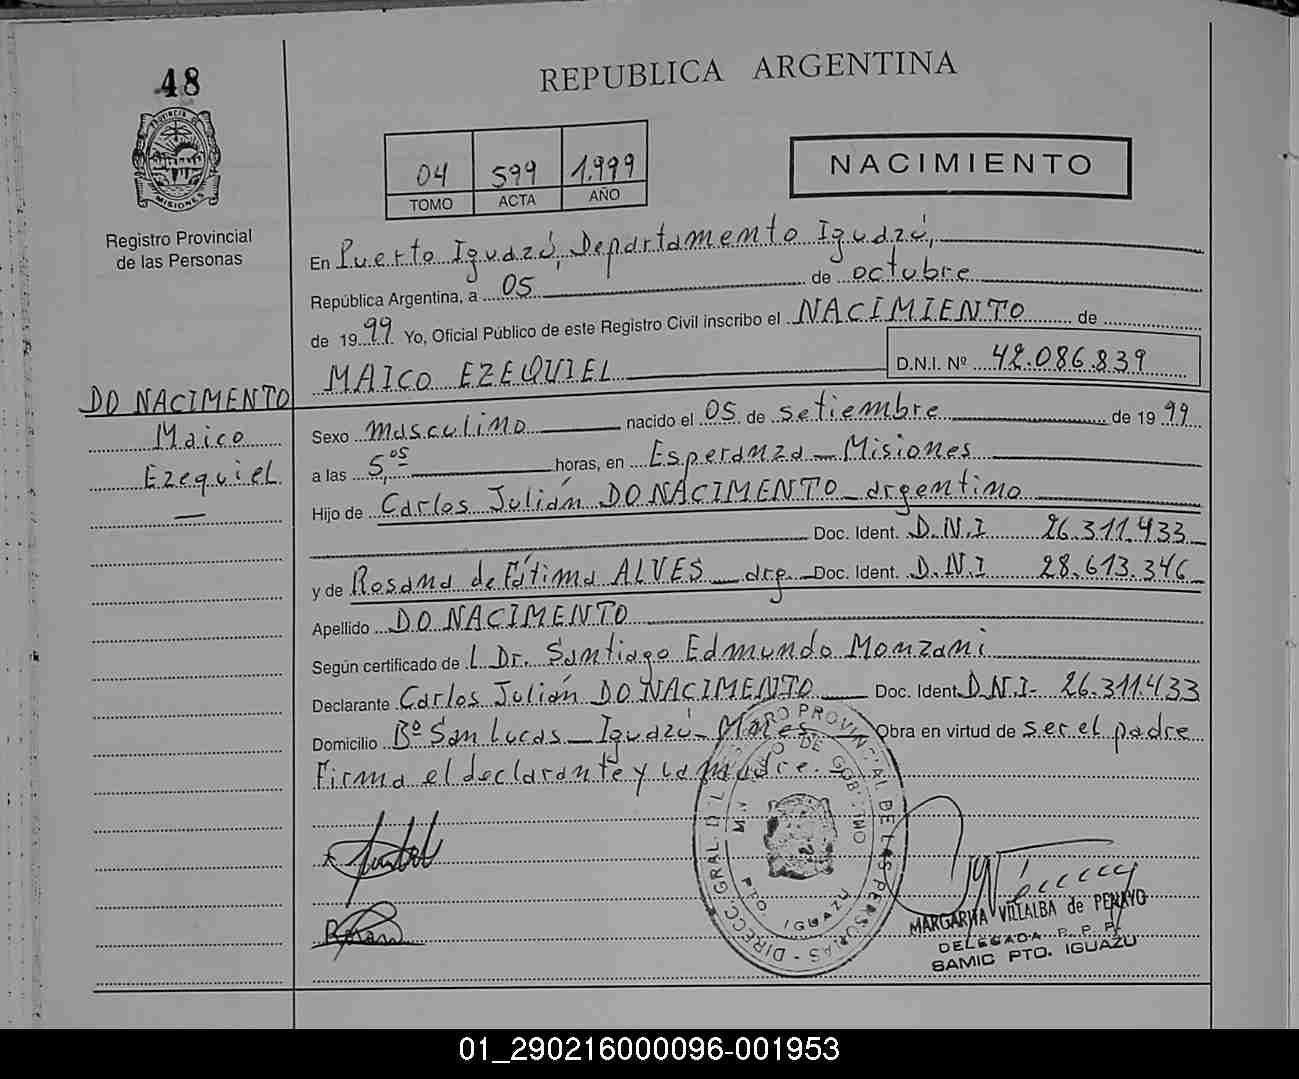 48
REPUBLICA ARGENTINA
PROVINCIA DE MISIONES
Registro Provincial
de las Personas
04 599 1.999
TOMO ACTA AÑO
NACIMIENTO
En Puerto Iguazú, Departamento Iguazú,
República Argentina, a 05 de octubre
de 1999 Yo, Oficial Público de este Registro Civil inscribo el NACIMIENTO de
MAICO EZEQUIEL D.N.I. Nº 42.086.839
DO NACIMENTO
Maico
Ezequiel
Sexo masculino nacido el 05 de setiembre de 1999
a las 5,05 horas, en Esperanza - Misiones
Hijo de Carlos Julián DO NACIMENTO - argentino
Doc. Ident. D.N.I 26.311.433
y de Rosana de Fátima ALVES - arg. Doc. Ident. D.N.I 28.613.346
Apellido DO NACIMENTO
Según certificado de l Dr. Santiago Edmundo Monzani
Declarante Carlos Julián DO NACIMENTO Doc. Ident D.N.I- 26.311.433
Domicilio Bº San Lucas - Iguazú - Mnes Obra en virtud de ser el padre
Firma el declarante y la madre.
PTO. IGUAZU
MARGARITA VILLALBA de PENAYO
DELEGADA R. P. P.
SAMIC PTO. IGUAZU
01_290216000096-001953